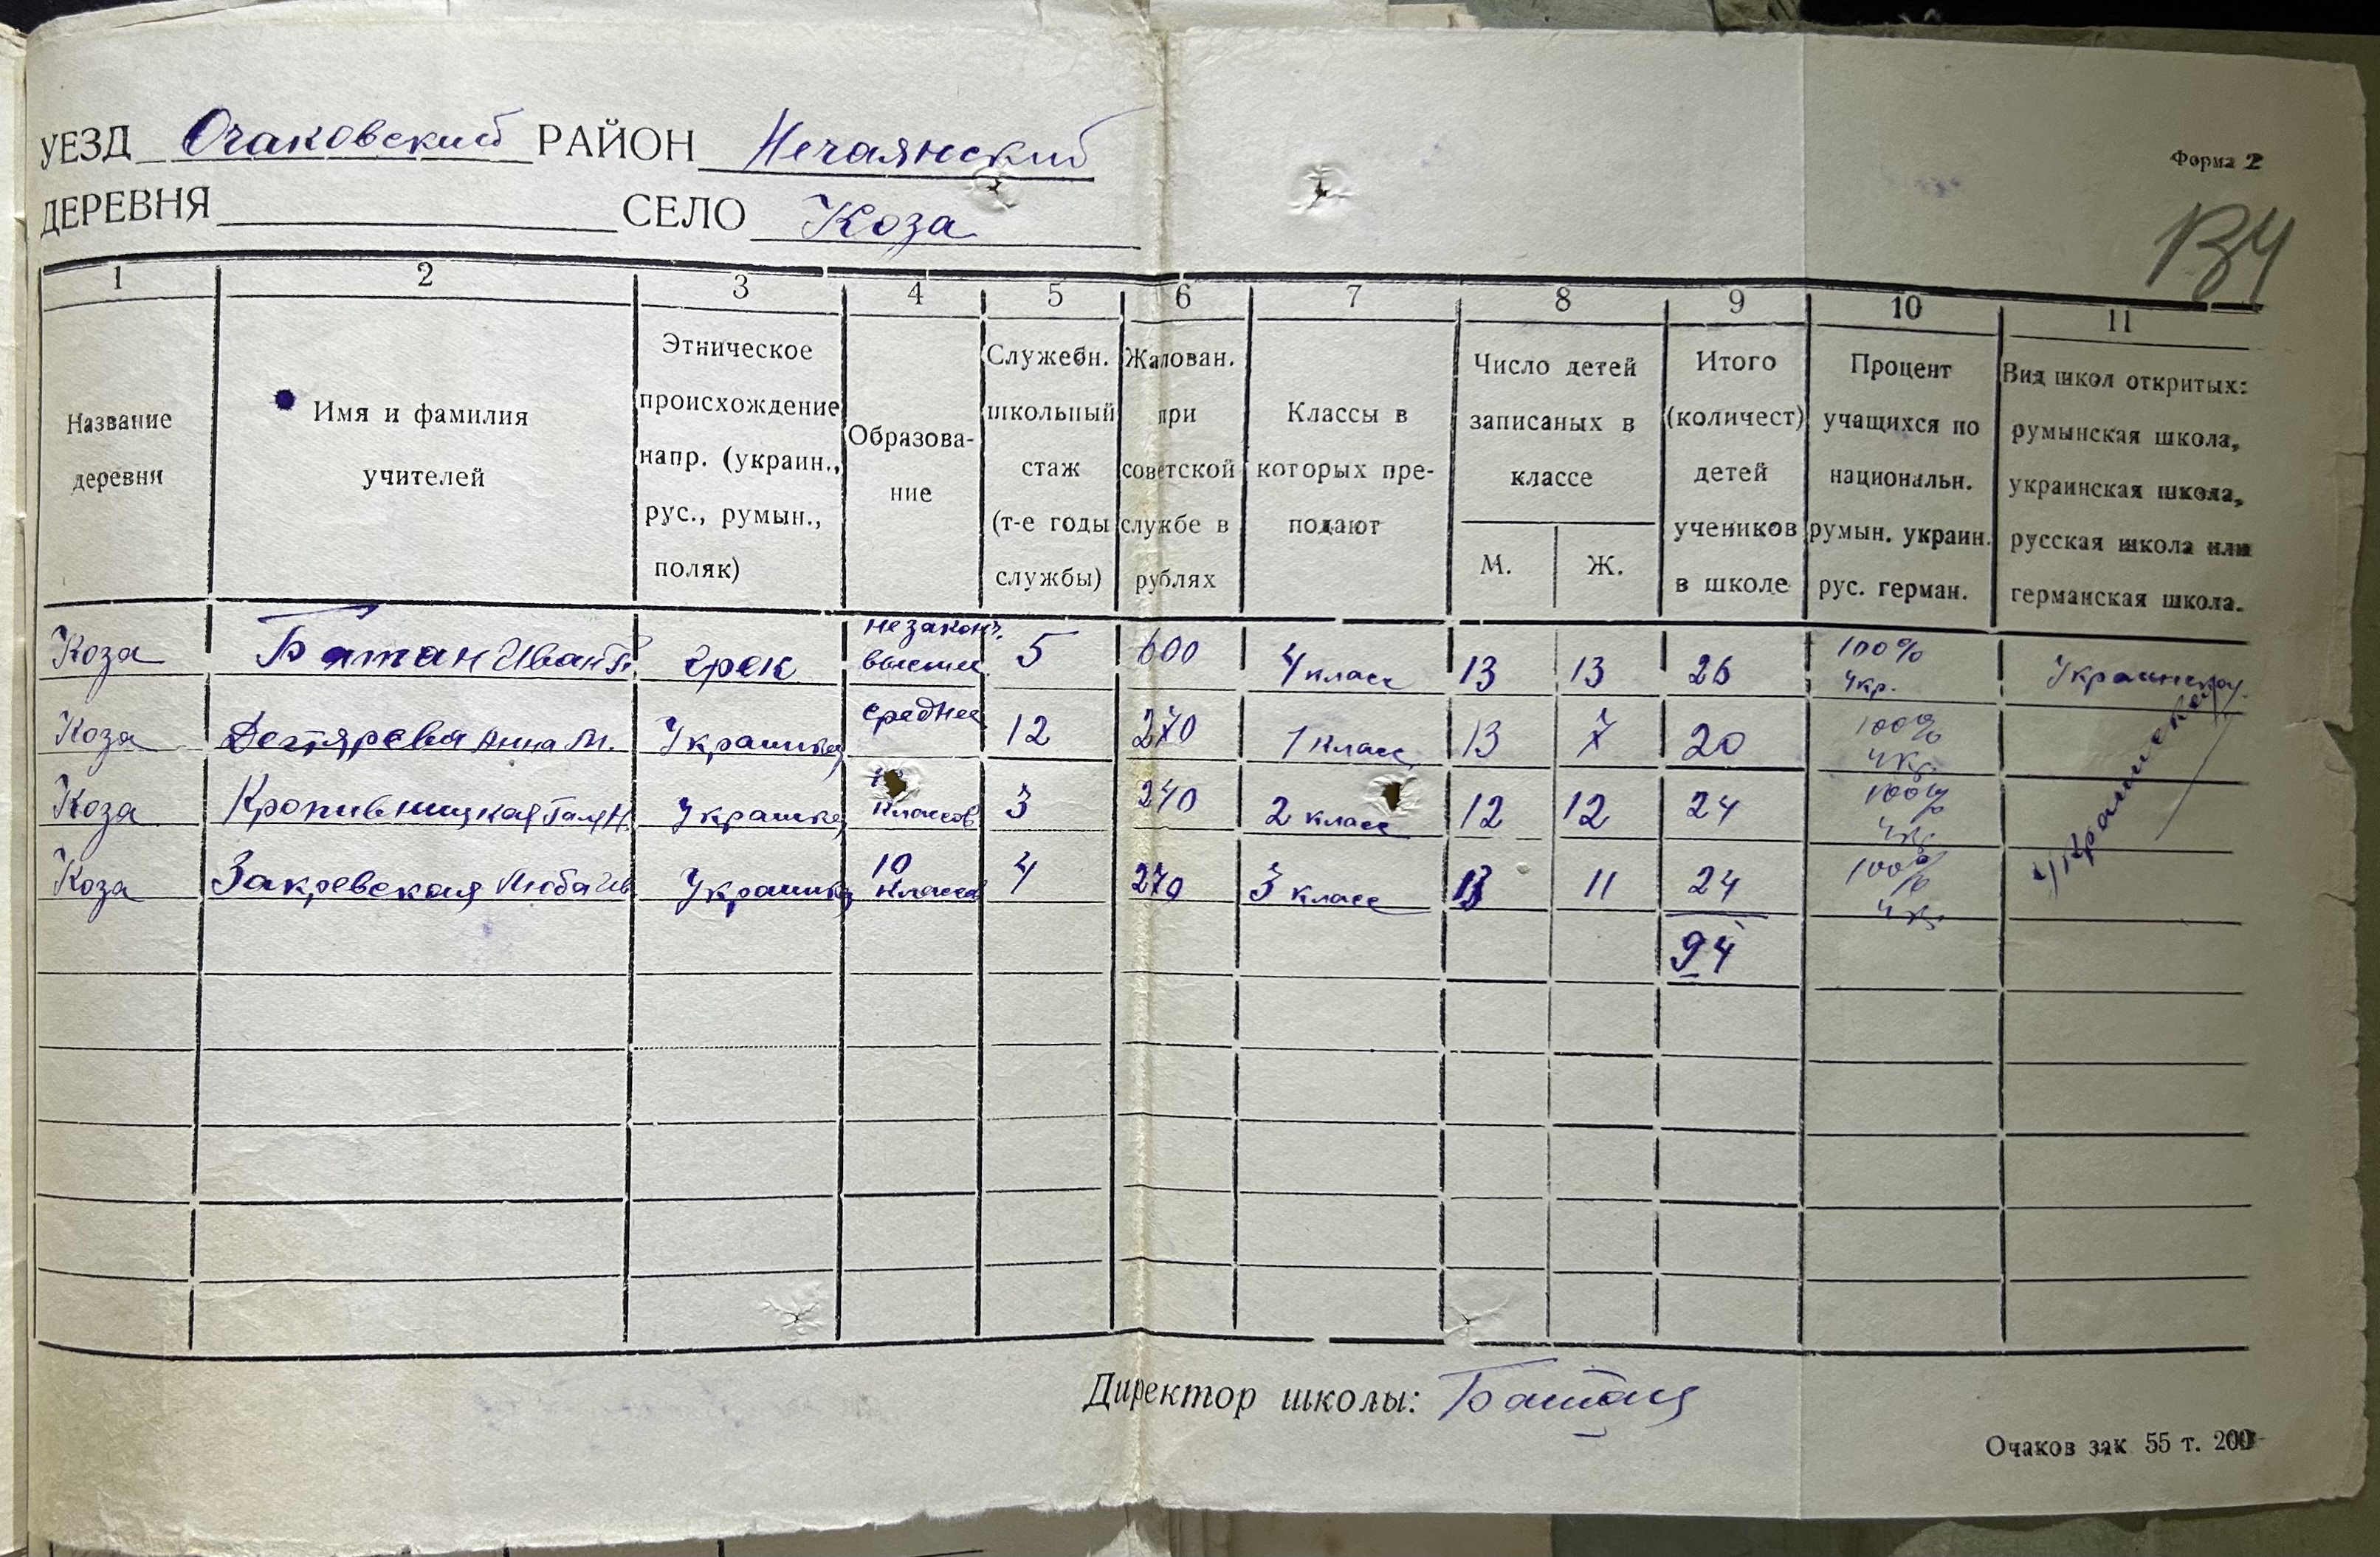 УЕЗД Очаковский РАЙОН Нечаянский
Форма 2
ДЕРЕВНЯ СЕЛО Коза
1 2 3 4 5 6 7 8 9 10 11
Название
деревни
Имя и фамилия
учителей
Этническое
происхождение
напр. (украин.,
рус., румын.,
поляк)
Образова-
ние
Служебн.
школьный
стаж
(т-е годы
службы)
Жалован.
при
советской
службе в
рублях
Классы в
которых пре-
подают
Число детей
записаных в
классе
М. Ж.
Итого
(количест)
детей
учеников
в школе
Процент
учащихся по
национальн.
румын. украин.
рус. герман.
Вид школ откритых:
румынская школа,
украинская школа,
русская школа или
германская школа.
Коза Батан Иван грек незаконч. высшее 5 600 4 класс 13 13 26 100% укр. Украинская
Коза Дегтярева Анна М. Украинка среднее 12 270 1 класс 13 7 20 100% укр. Украинская
Коза Кропивницкая Галя Н. Украинка классов 3 240 2 класс 12 12 24 100% укр.
Коза Закревская Люба Ив Украинка 10 классов 4 270 3 класс 13 11 24 100% укр.
94
Директор школы: Батан
Очаков зак 55 т. 200